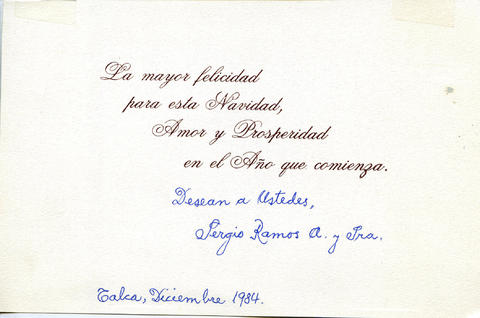 La mayor felicidad
para esta Navidad,
Amor y Prosperidad
en el Año que comienza.
Desean a Ustedes,
Sergio Ramos A. y Sra.
Talca, Diciembre 1984.